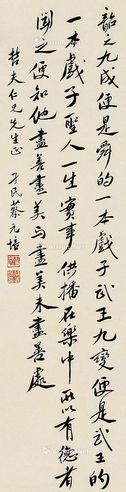 韶之九成便是舜的一本戲子武王九變便是武王的
一本戲子聖人一生實事俱播在樂中所以有德者
聞之便知他盡善盡美與盡美未盡善處
哲夫仁兄先生正 孑民蔡元培